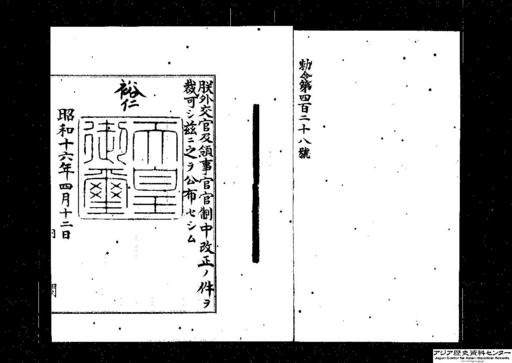 勅令第四百二十八號
朕外交官及領事官官制中改正ノ件ヲ
裁可シ茲ニ之ヲ公布セシム
裕仁
天皇
御璽
昭和十六年四月十二日
アジア歴史資料センター
Japan Center for Asian Historical Records